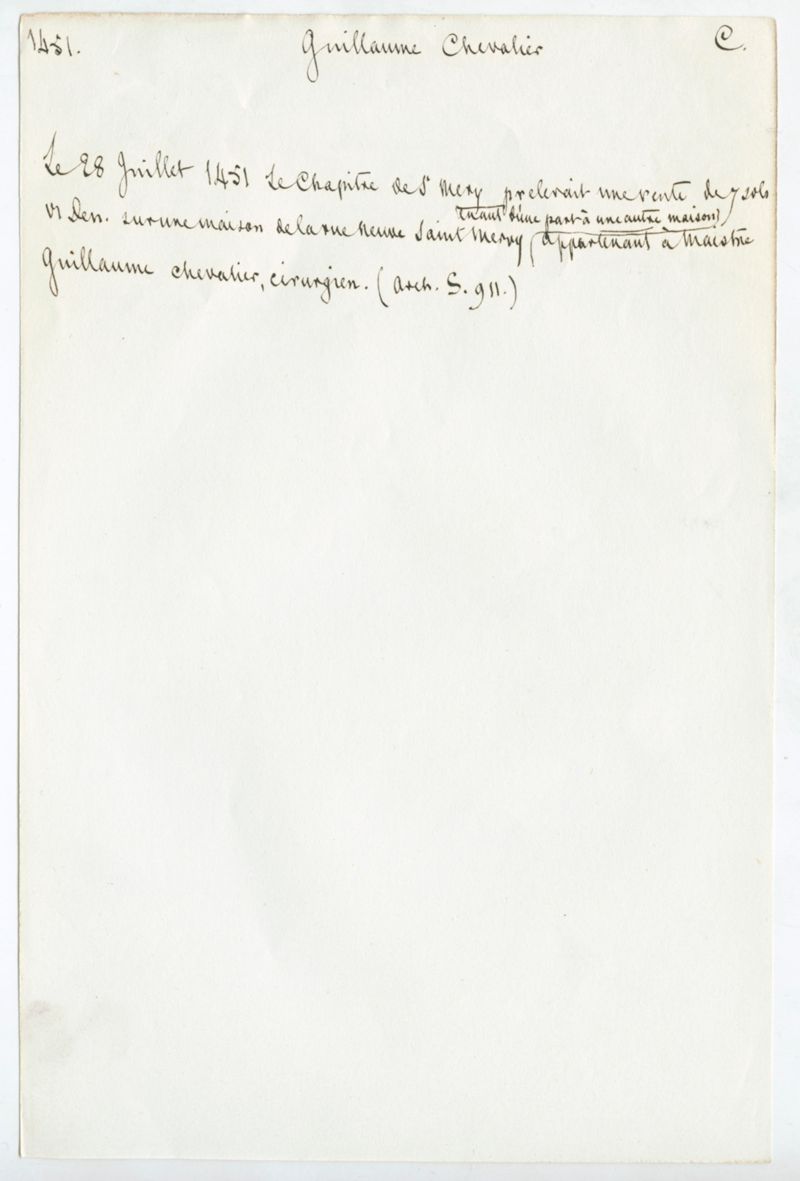 1451. Guillaume Chevalier C.
Le 28 Juillet 1451 Le Chapitre de St Mery prelevait une rente de 7 sols
VI Den. sur une maison de la rue Neuve Saint Merry (tenant d'une part à une autre maison) appartenant à Maistre
Guillaume Chevalier, cirurgien. (Arch. S. 911.)